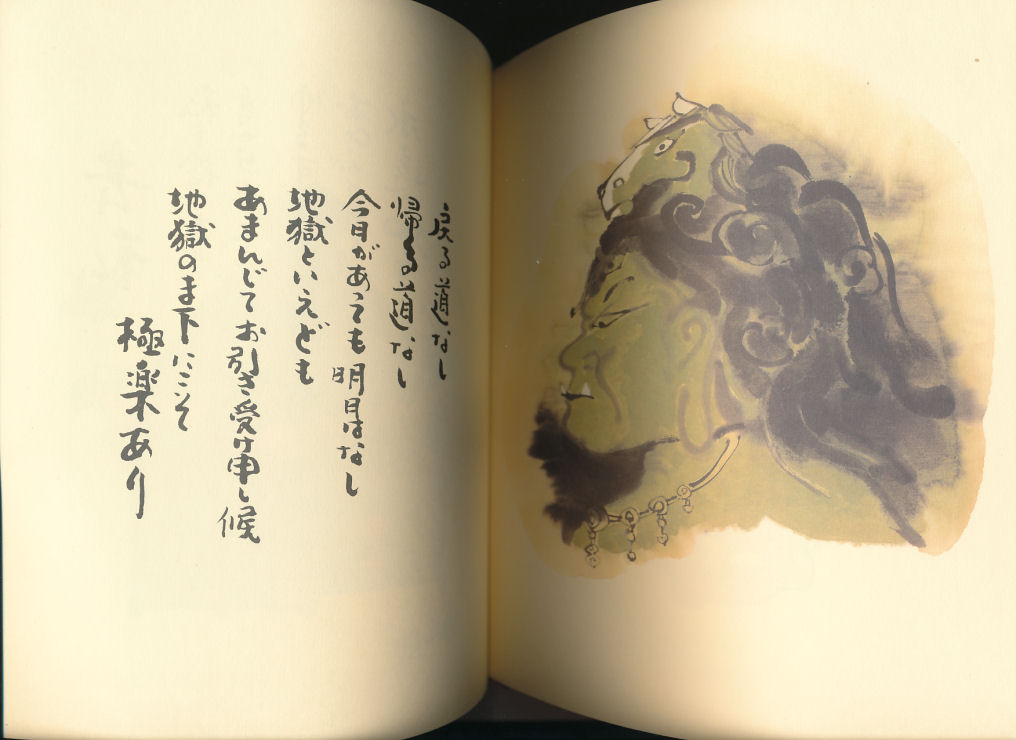 戻る道なし
帰る道なし
今日があっても明日はなし
地獄といえども
あまんじてお引き受け申し候
地獄のま下にこそ
極楽あり